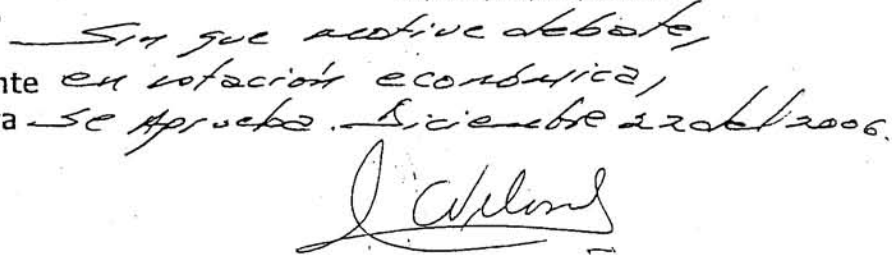 Sin que motive debate,
nte en votación económica,
a Se Aprueba. Diciembre 22 del 2006.